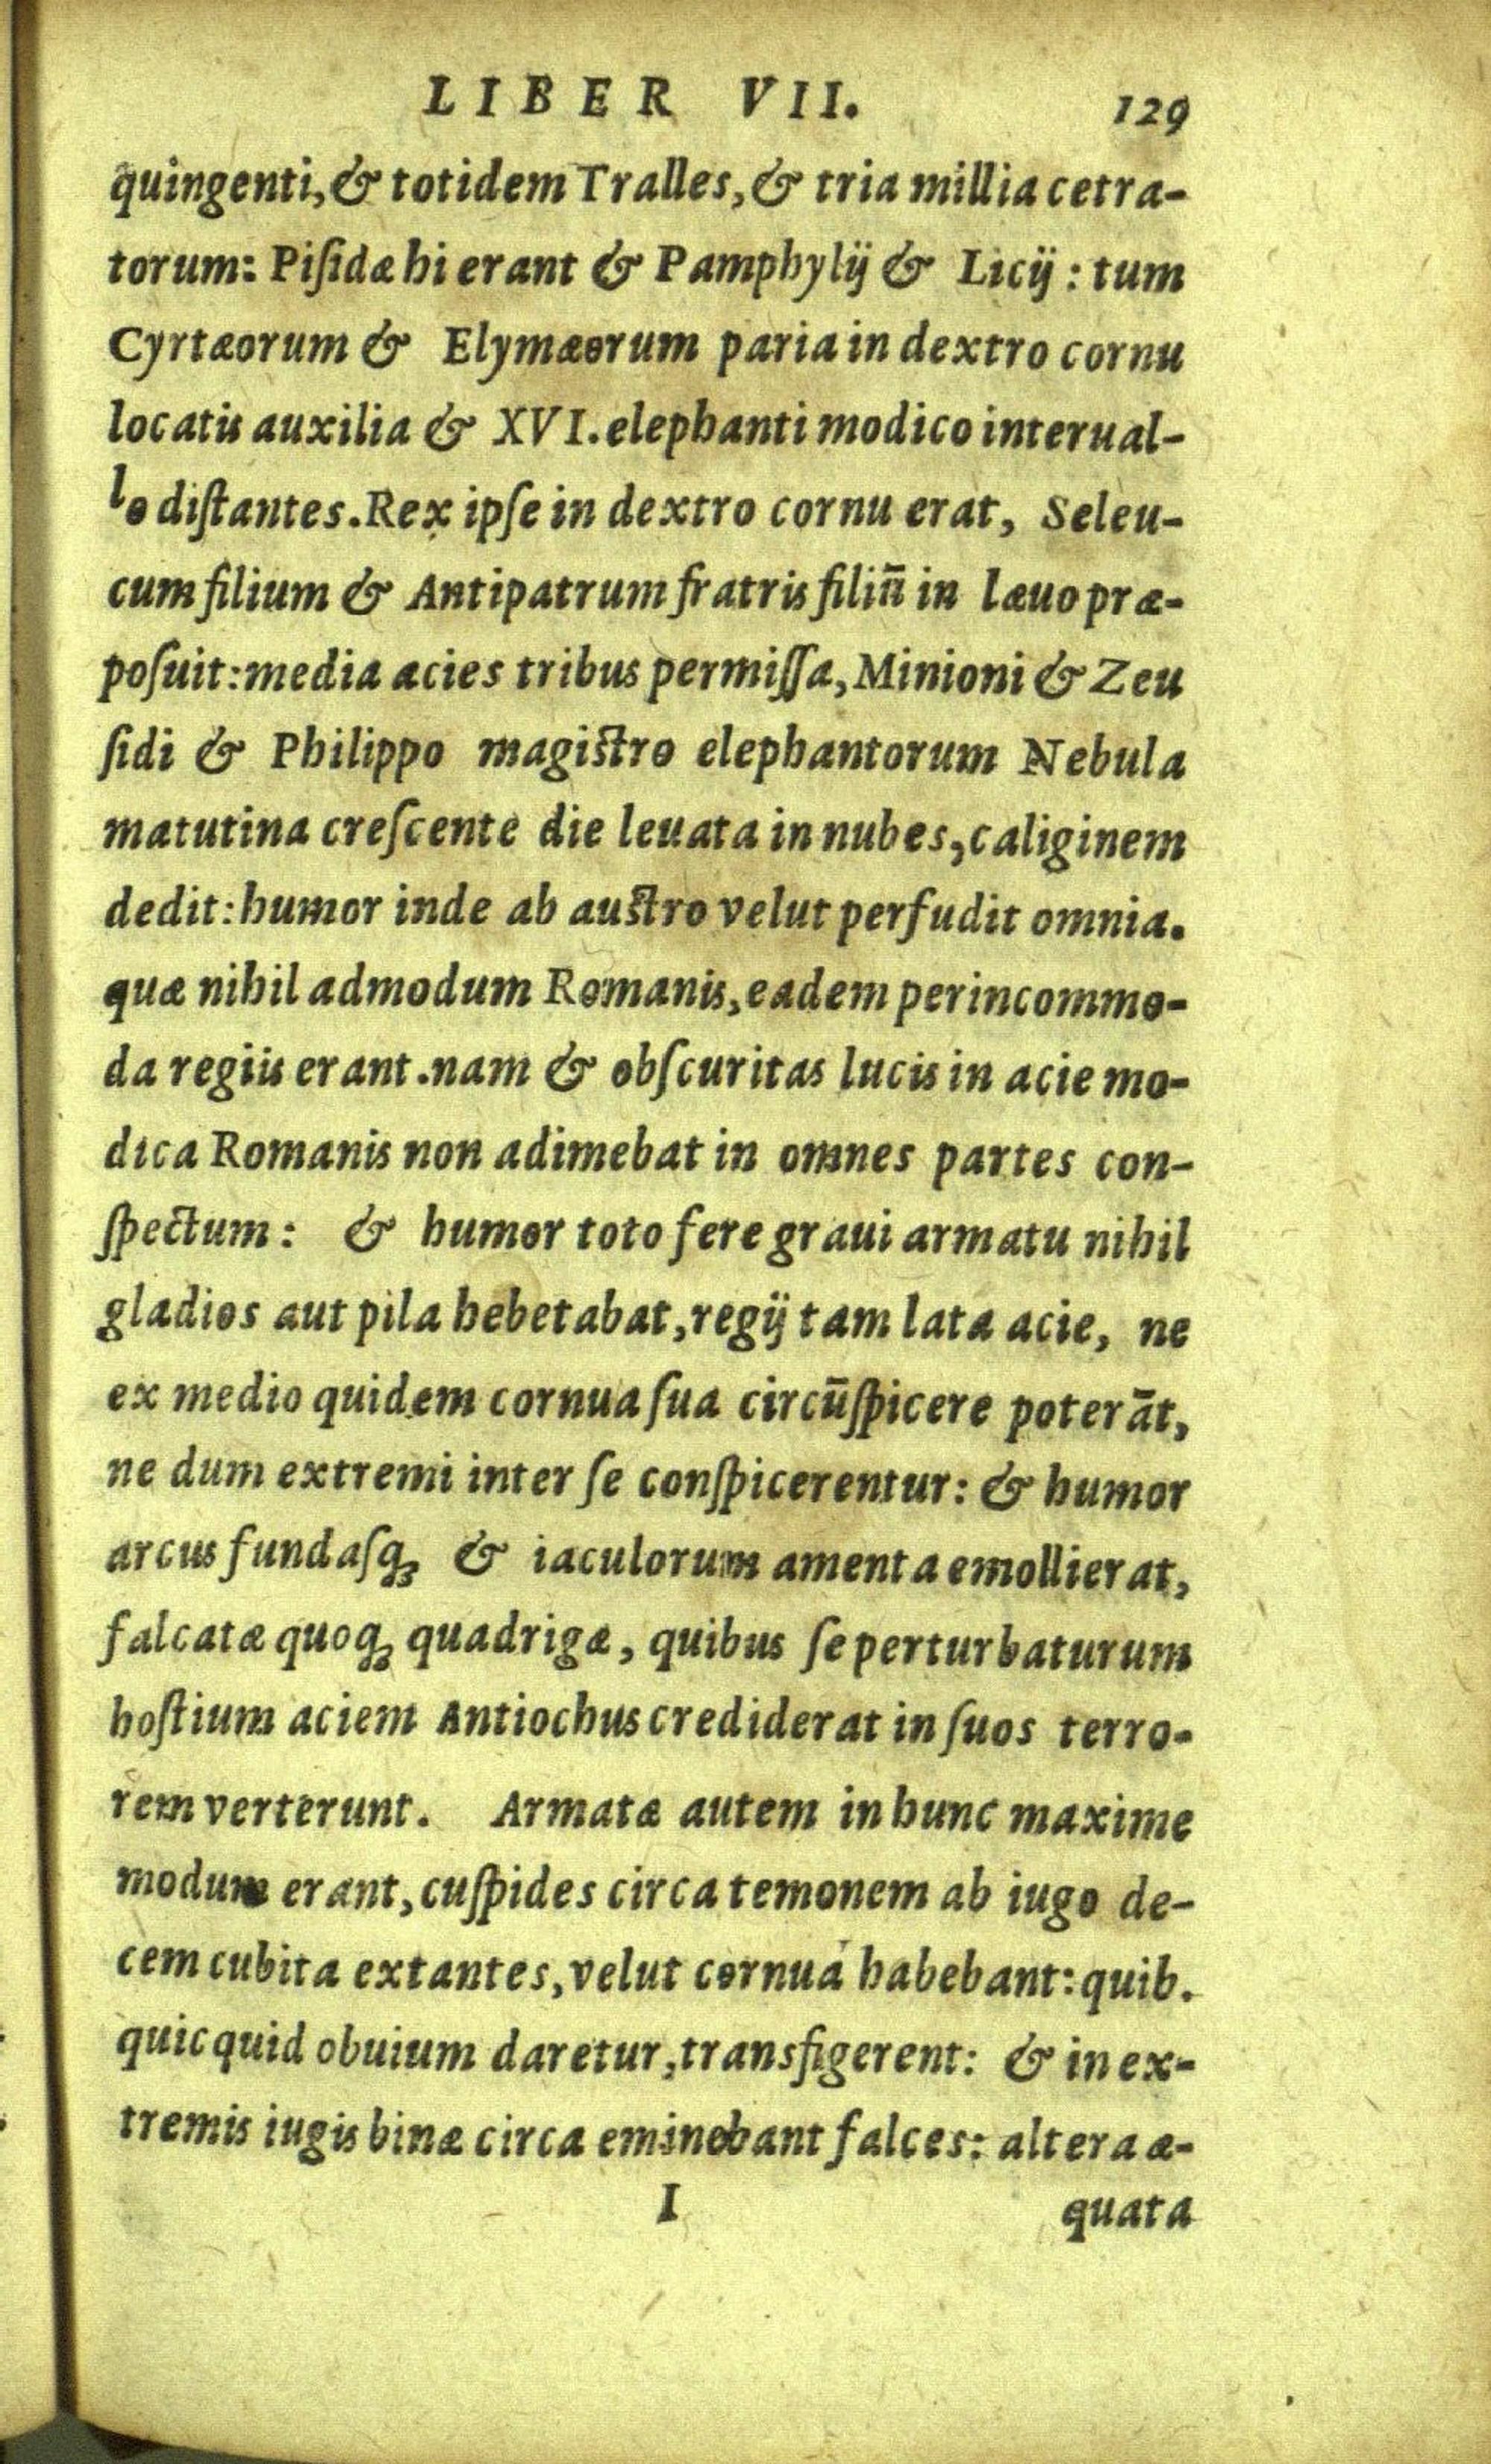 LIBER VII. 129
quingenti, & totidem Tralles, & tria millia cetra-
torum: Piſidæ hi erant & Pamphylij & Licij: tum
Cyrtæorum & Elymæorum paria in dextro cornu
locatis auxilia & XVI. elephanti modico interual-
lo diſtantes. Rex ipſe in dextro cornu erat, Seleu-
cum filium & Antipatrum fratris filiũ in læuo præ-
poſuit: media acies tribus permiſſa, Minioni & Zeu
ſidi & Philippo magiſtro elephantorum Nebula
matutina creſcente die leuata in nubes, caliginem
dedit: humor inde ab auſtro velut perfudit omnia.
quæ nihil admodum Romanis, eadem perincommo-
da regiis erant. nam & obſcuritas lucis in acie mo-
dica Romanis non adimebat in omnes partes con-
ſpectum: & humor toto fere graui armatu nihil
gladios aut pila hebetabat, regij tam lata acie, ne
ex medio quidem cornua ſua circũſpicere poterãt,
ne dum extremi inter ſe conſpicerentur: & humor
arcus fundaſq; & iaculorum amenta emollierat,
falcatæ quoq; quadrigæ, quibus ſe perturbaturum
hoſtium aciem Antiochus crediderat in ſuos terro-
rem verterunt. Armatæ autem in hunc maxime
modum erant, cuſpides circa temonem ab iugo de-
cem cubita extantes, velut cornua habebant: quib.
quicquid obuium daretur, transfigerent: & in ex-
tremis iugis binæ circa eminebant falces: altera æ-
I quata